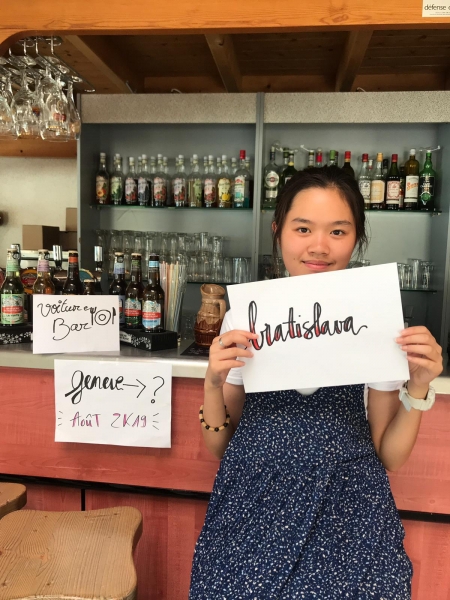 défense
voiture en
Bar
geneve → ?
AOÛT 2K19
bratislava